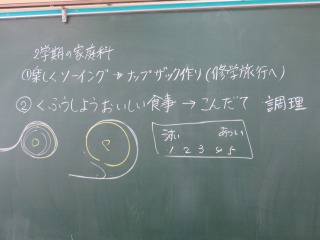 2学期の家庭科
①楽しくソーイング→ナップザック作り(修学旅行へ)
②くふうしようおいしい食事→こんだて 調理
あつい
1 2 3 4 5